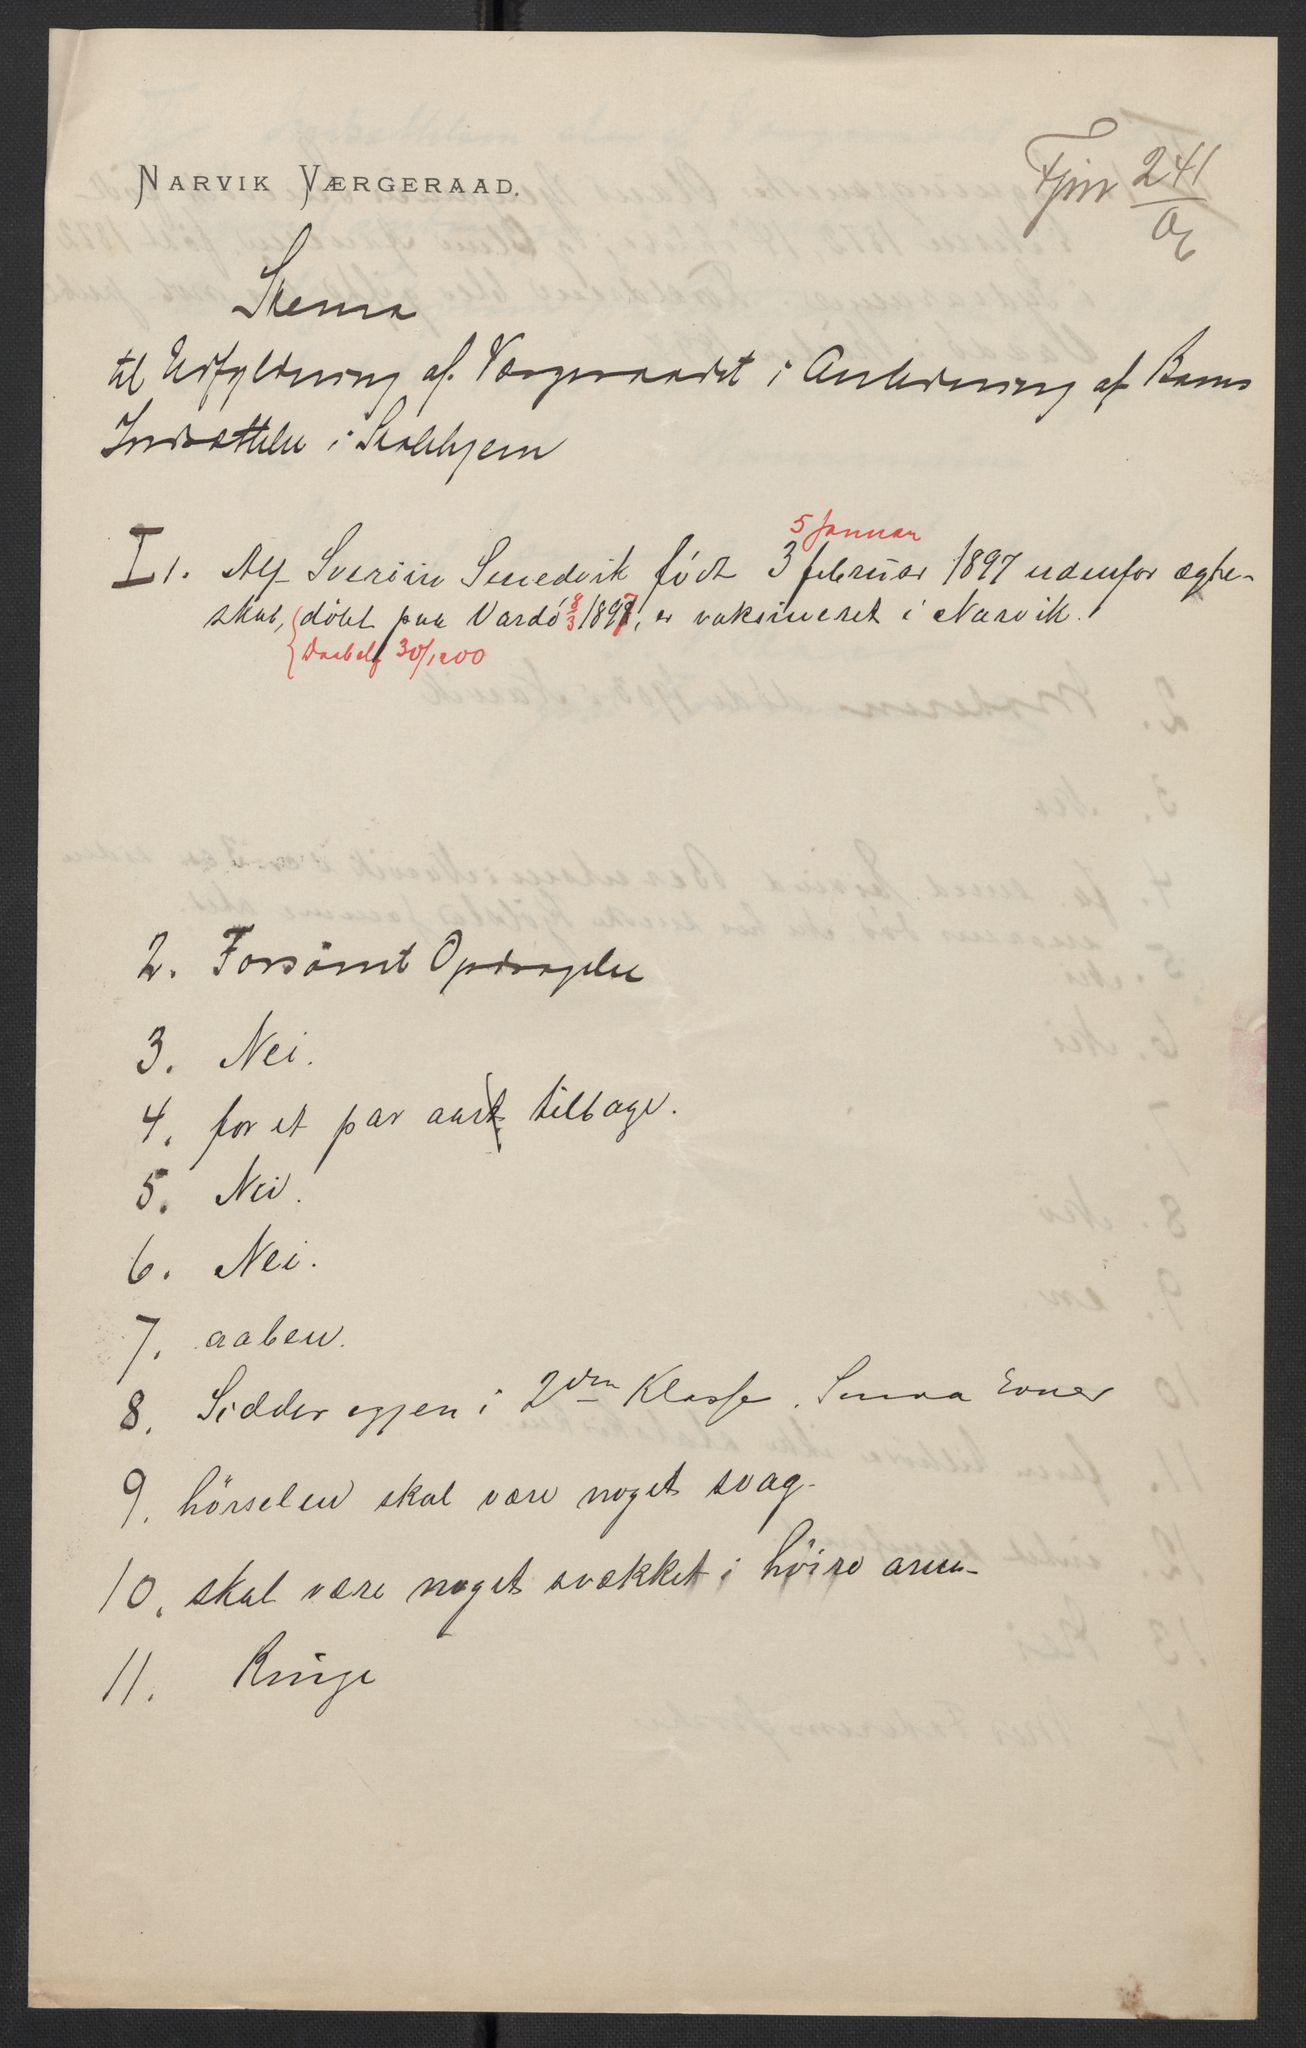 NARVIK VÆRGERAAD.
Fjnr 241/06
Skema
til Udfyldning af Værgeraadet i Anledning af Barns
Indsættelse i Skolehjem
5 Januar
I 1. Alf Severin Smedvik født 3 februar 1897 udenfor ægte-
skab, døbt paa Vardø 8/3 1897, er vaksineret i Narvik.
Daabsat 30/1 1900
2. Forsømt Opdragelse
3. Nei.
4. for et par aar tilbage.
5. Nei.
6. Nei.
7. aaben.
8. Sidder igjen i 2den Klasse. Smaa Evner
9. hørselen skal være noget svag.
10. skal være noget svækket i høire arm.
11. Ringe